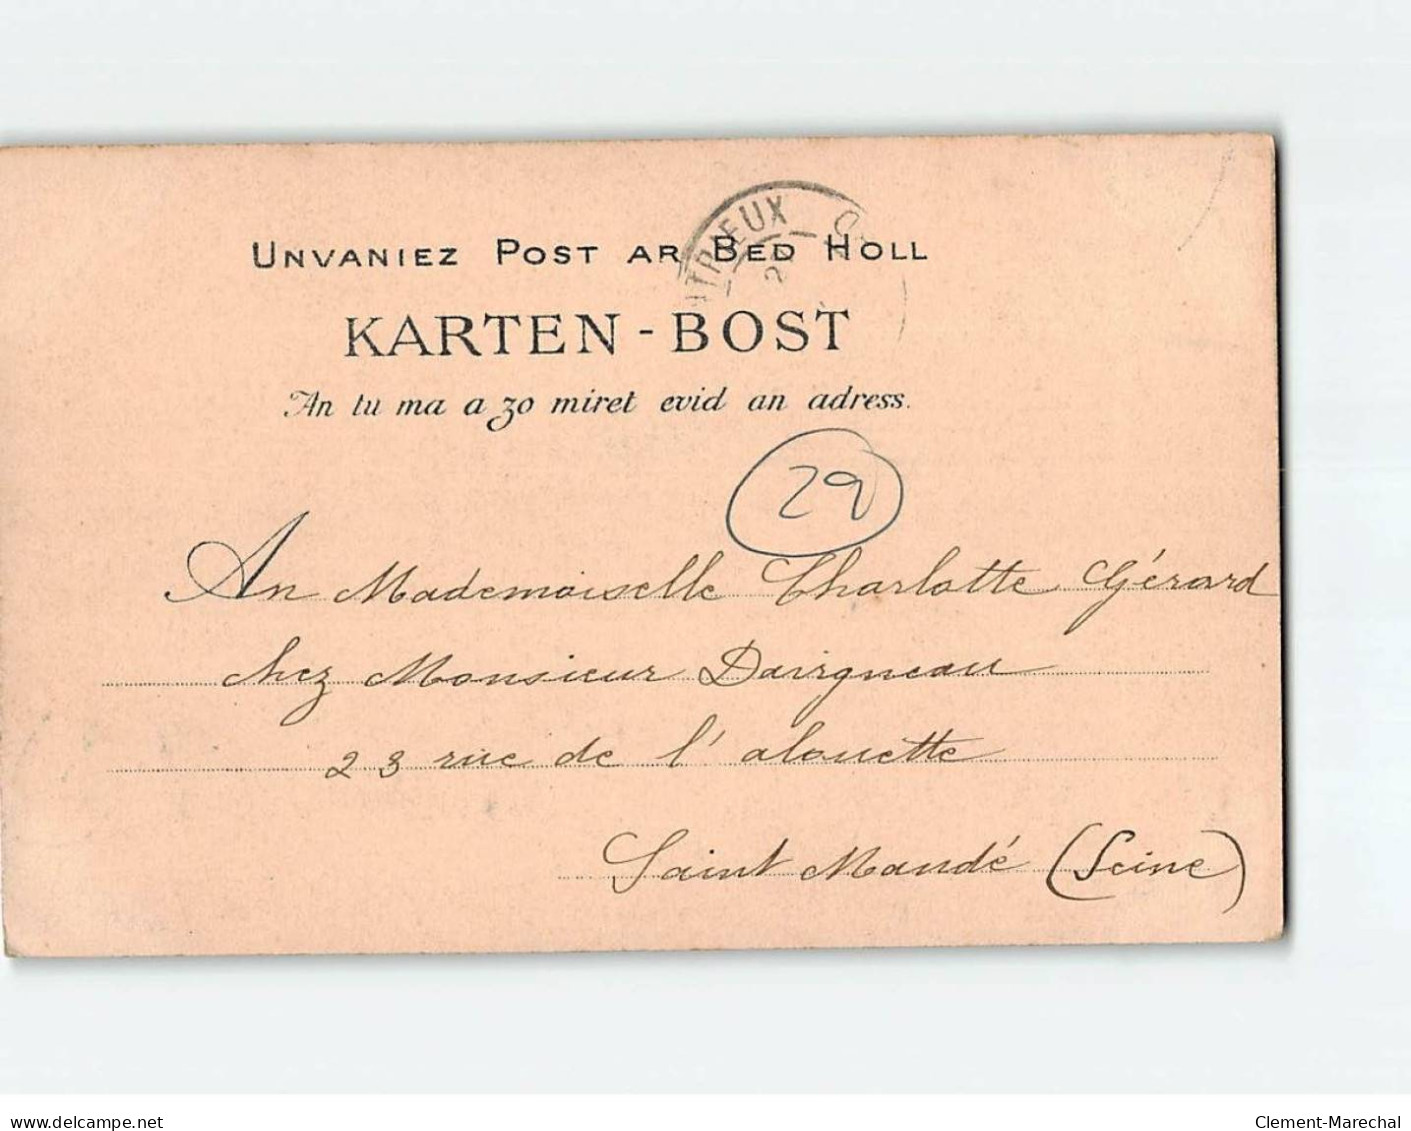 UNVANIEZ POST AR BED HOLL
KARTEN-BOST
An tu ma a zo miret evid an adress.
29
An Mademoiselle Charlotte Gérard
chez Monsieur Davigneau
23 rue de l'alouette
Saint Mandé (Seine)
delcampe.net
Clement-Marechal